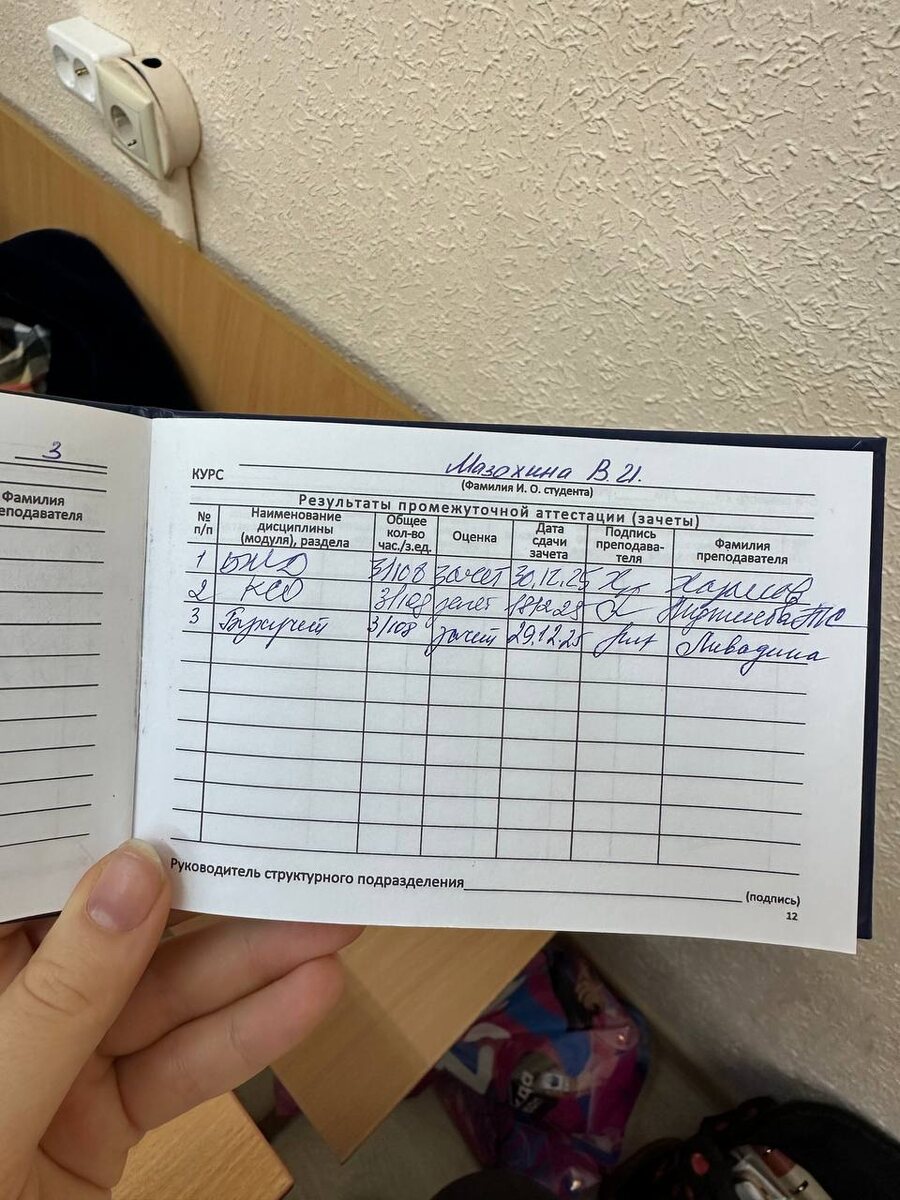 3
Фамилия
еподавателя
КУРС Мазохина В.И.
(Фамилия И. О. студента)
Результаты промежуточной аттестации (зачеты)
№ п/п Наименование дисциплины (модуля), раздела Общее кол-во час./з.ед. Оценка Дата сдачи зачета Подпись преподава-теля Фамилия преподавателя
1 БЖД 3/108 зачет 30.12.25
2 КСО 3/108 зачет
3 Бухучет 3/108 зачет 29.12.25 Ливадина
Руководитель структурного подразделения
(подпись)
12